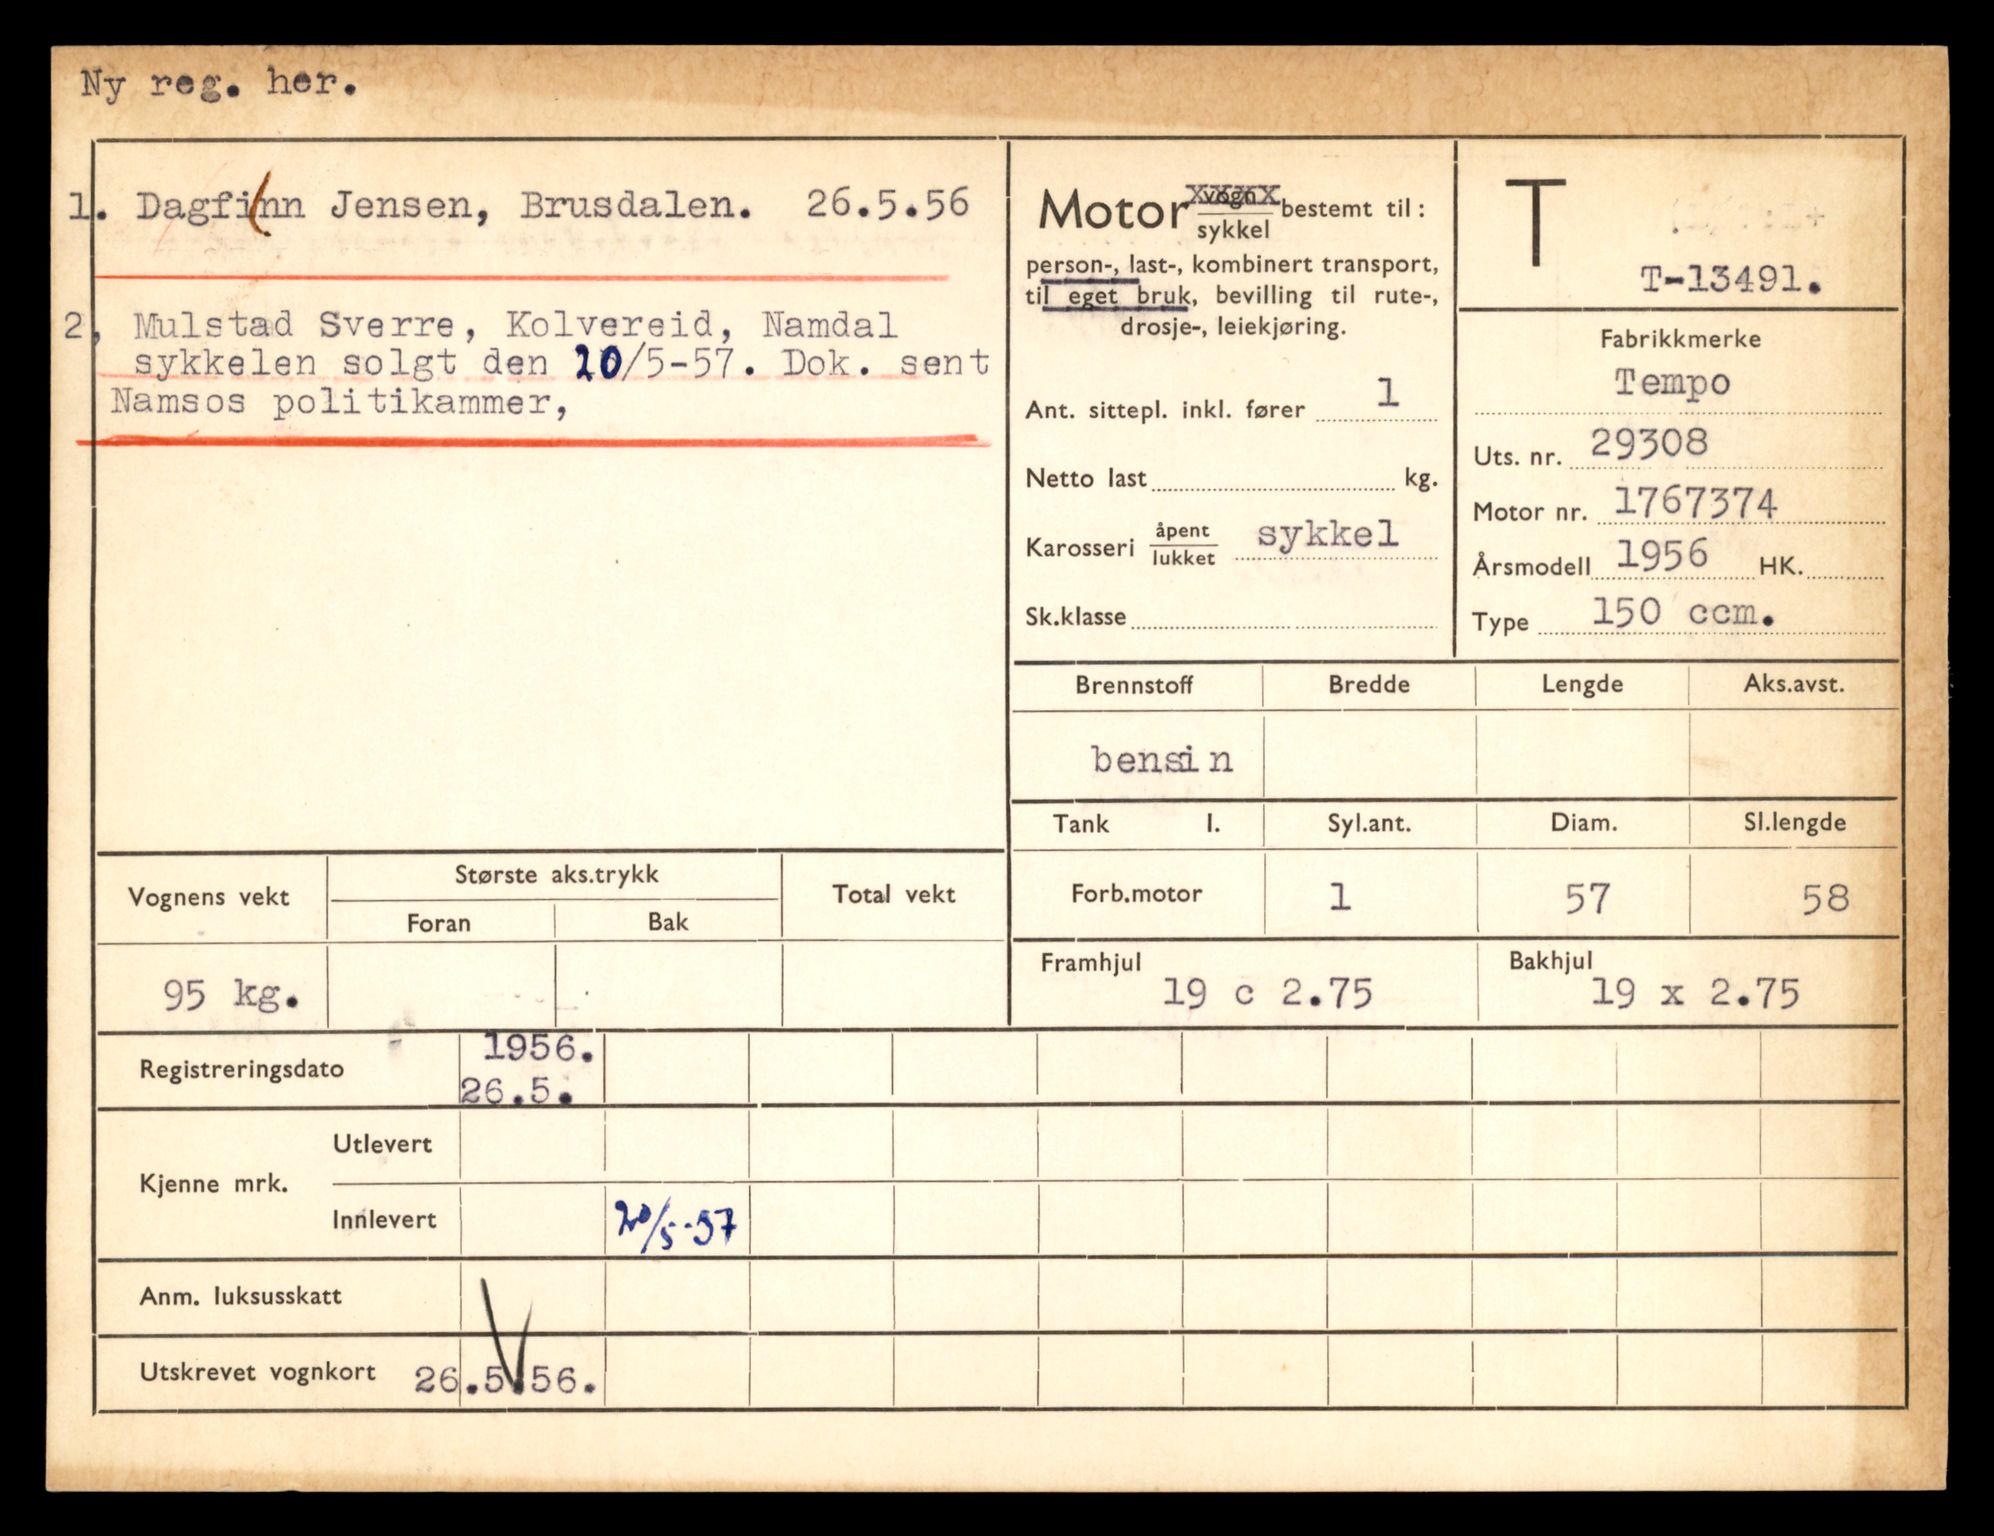 Ny reg. her.
1. Dagfinn Jensen, Brusdalen. 26.5.56
2, Mulstad Sverre, Kolvereid, Namdal
sykkelen solgt den 20/5-57. Dok. sent
Namsos politikammer,
Motor vogn sykkel bestemt til:
person-, last-, kombinert transport,
til eget bruk, bevilling til rute-,
drosje-, leiekjøring.
Ant. sittepl. inkl. fører 1
Netto last kg.
Karosseri åpent lukket sykkel
Sk.klasse
T
T-13491.
Fabrikkmerke
Tempo
Uts. nr. 29308
Motor nr. 1767374
Årsmodell 1956 HK.
Type 150 ccm.
Brennstoff Bredde Lengde Aks.avst.
bensin
Tank l. Syl.ant. Diam. Sl.lengde
Forb.motor 1 57 58
Framhjul Bakhjul
19 c 2.75 19 x 2.75
Vognens vekt Største aks.trykk Total vekt
Foran Bak
95 kg.
Registreringsdato 1956.
26.5.
Kjenne mrk. Utlevert
Innlevert 20/5-57
Anm. luksusskatt
Utskrevet vognkort 26.5.56.